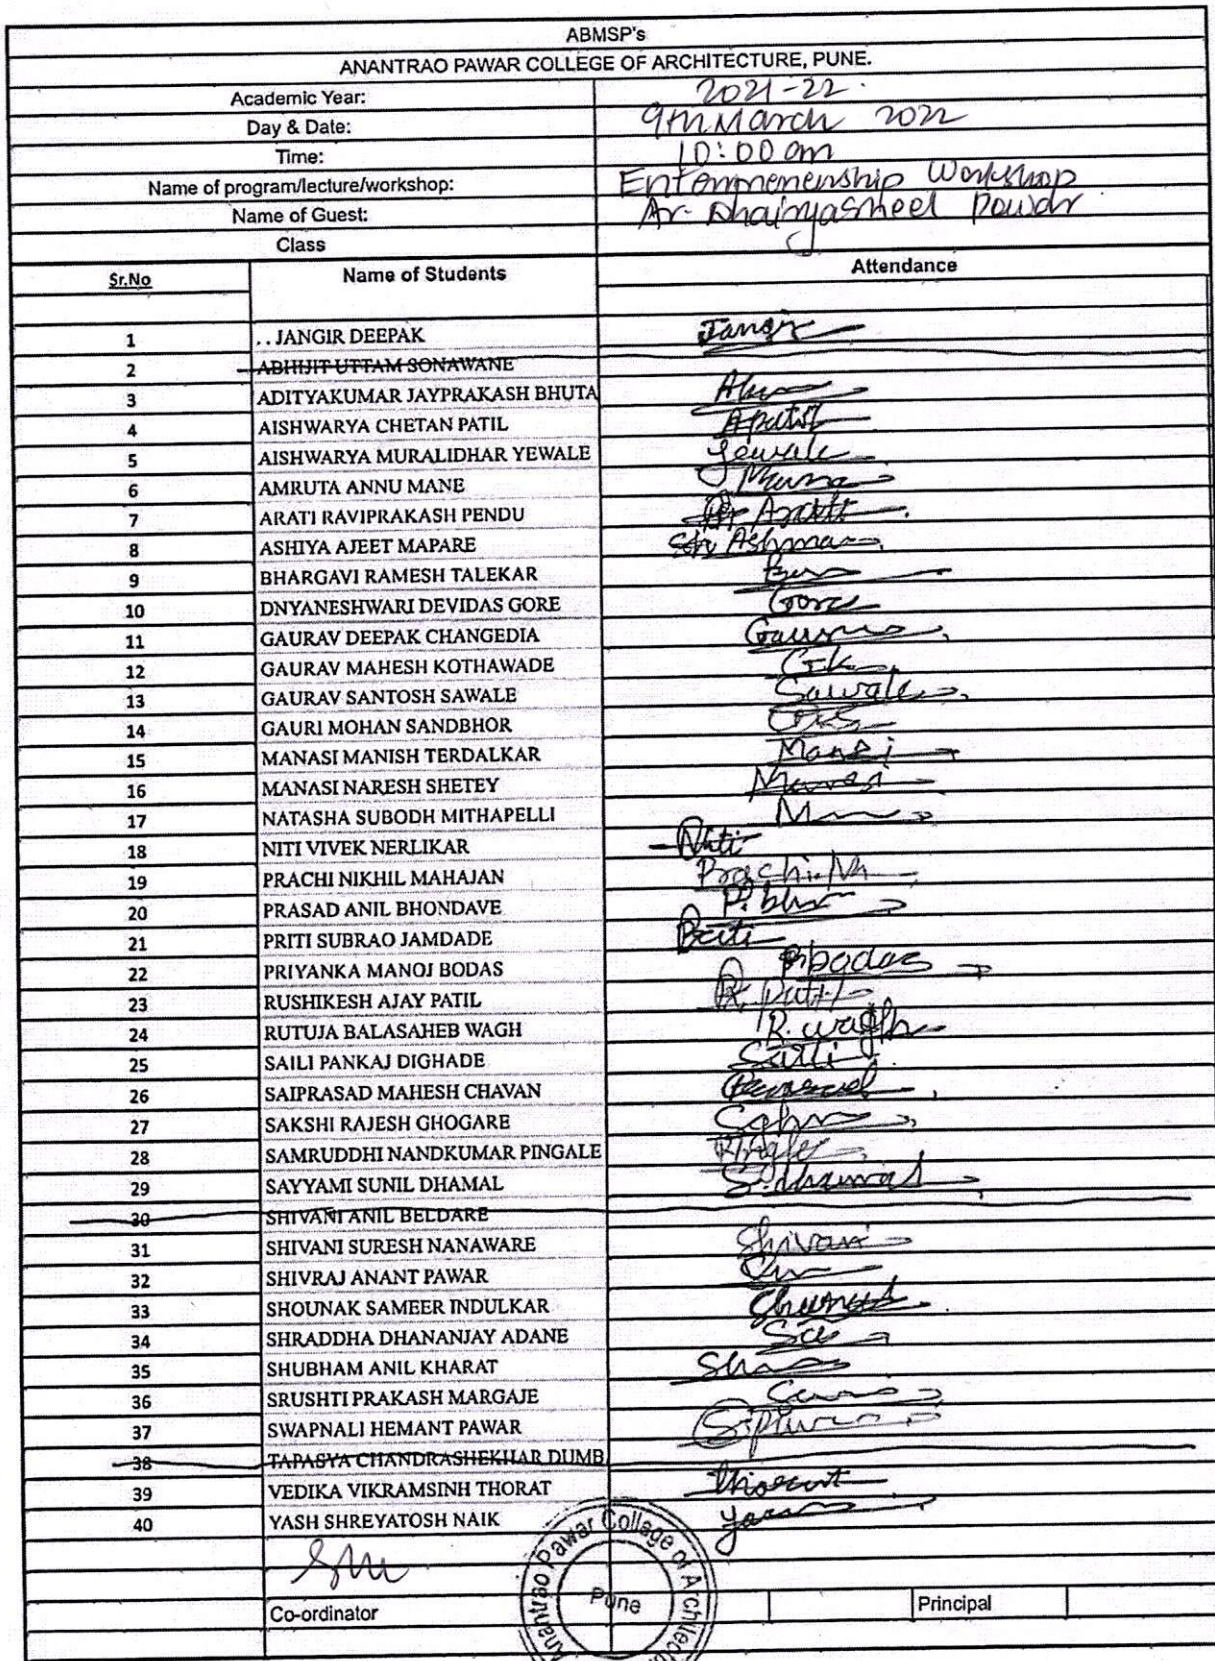 ABMSP's
ANANTRAO PAWAR COLLEGE OF ARCHITECTURE, PUNE.
Academic Year: 2021-22.
Day & Date: 9th March 2022
Time: 10:00 am
Name of program/lecture/workshop: Workshop
Name of Guest: Ar. Dhairyasheel Pawar
Class
Sr.No Name of Students Attendance
1 . . JANGIR DEEPAK Jangir
2 ABHIJIT UTTAM SONAWANE
3 ADITYAKUMAR JAYPRAKASH BHUTA
4 AISHWARYA CHETAN PATIL Apatil
5 AISHWARYA MURALIDHAR YEWALE Yewale
6 AMRUTA ANNU MANE
7 ARATI RAVIPRAKASH PENDU
8 ASHIYA AJEET MAPARE
9 BHARGAVI RAMESH TALEKAR
10 DNYANESHWARI DEVIDAS GORE Gore
11 GAURAV DEEPAK CHANGEDIA
12 GAURAV MAHESH KOTHAWADE
13 GAURAV SANTOSH SAWALE Sawale
14 GAURI MOHAN SANDBHOR
15 MANASI MANISH TERDALKAR Mansi
16 MANASI NARESH SHETEY
17 NATASHA SUBODH MITHAPELLI
18 NITI VIVEK NERLIKAR Niti
19 PRACHI NIKHIL MAHAJAN Prachi.NM
20 PRASAD ANIL BHONDAVE
21 PRITI SUBRAO JAMDADE Priti
22 PRIYANKA MANOJ BODAS Pbodas
23 RUSHIKESH AJAY PATIL R. Patil
24 RUTUJA BALASAHEB WAGH R. wagh
25 SAILI PANKAJ DIGHADE Saili
26 SAIPRASAD MAHESH CHAVAN
27 SAKSHI RAJESH GHOGARE
28 SAMRUDDHI NANDKUMAR PINGALE
29 SAYYAMI SUNIL DHAMAL S.dhamal
30 SHIVANI ANIL BELDARE
31 SHIVANI SURESH NANAWARE Shivani
32 SHIVRAJ ANANT PAWAR
33 SHOUNAK SAMEER INDULKAR
34 SHRADDHA DHANANJAY ADANE
35 SHUBHAM ANIL KHARAT
36 SRUSHTI PRAKASH MARGAJE
37 SWAPNALI HEMANT PAWAR
38 TAPASYA CHANDRASHEKHAR DUMB
39 VEDIKA VIKRAMSINH THORAT Thorat
40 YASH SHREYATOSH NAIK
Anantrao Pawar College of Architec
Pune
Co-ordinator Principal